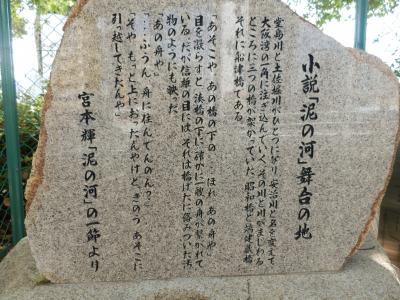 小説「泥の河」舞台の地
堂島川と土佐堀川がひとつになり、安治川と名を変えて
大阪湾の一角に注ぎ込んでいく。その川と川がまじわる
ところに三つの橋が架かっていた。昭和橋と端建蔵橋、
それに船津橋である。
「あそこや、あの橋の下の……ほれ、あの舟や」
目を凝らすと、湊橋の下に、確かに一艘の舟が繋がれて
いる。だが信雄の目には、それは橋げたに絡みついた汚
物のようにも映った。
「あの舟や」
「……ふうん、舟に住んでんのん?」
「そや、もっと上におったんやけど、きのうあそこに
引っ越してきたんや」
宮本輝「泥の河」の一節より